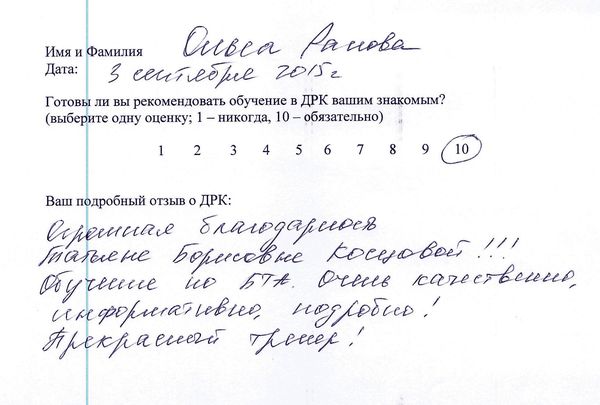 Имя и Фамилия Ольга Рапова
Дата: 3 сентября 2015г
Готовы ли вы рекомендовать обучение в ДРК вашим знакомым?
(выберите одну оценку; 1 – никогда, 10 – обязательно)
1 2 3 4 5 6 7 8 9 10
Ваш подробный отзыв о ДРК:
Огромная благодарность
Татьяне Борисовне Косцовой!!!
Обучение по БТА. Очень качественно,
информативно, подробно!
Прекрасный тренер!